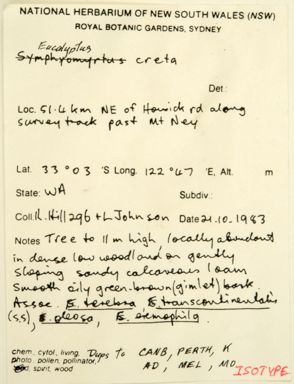 NATIONAL HERBARIUM OF NEW SOUTH WALES (NSW)
ROYAL BOTANIC GARDENS, SYDNEY
Eucalyptus
Symphyomyrtus creta
Det.:
Loc. 51.4 km NE of Howick rd along
survey track past Mt Ney
Lat. 33°03 'S Long. 122°47 'E, Alt. m
State: WA Subdiv.:
Coll. K. Hill 296 + L Johnson Date 21.10.1983
Notes Tree to 11 m high, locally abundant
in dense low woodland on gently
sloping sandy calcareous loam
Smooth oily green-brown (gimlet) bark
Assoc. E. terebra E. transcontinentalis
(s.s), E. oleosa, E. eremophila
chem., cytol., living, Dups to CANB, PERTH, K
photo, pollen, pollinator, AD, MEL, MO
spirit, wood
ISOTYPE